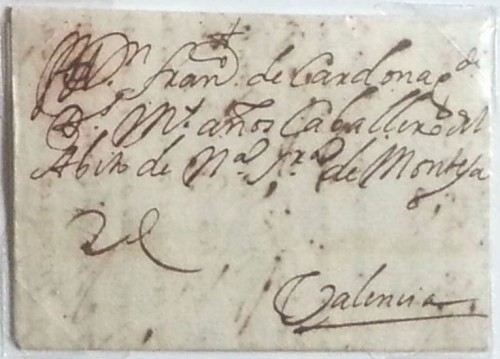 ✝
A D.n Fran.co de Cardona q de
D.s M.s años Caballero del
Abito de N.a S.ra de Montesa
Valencia